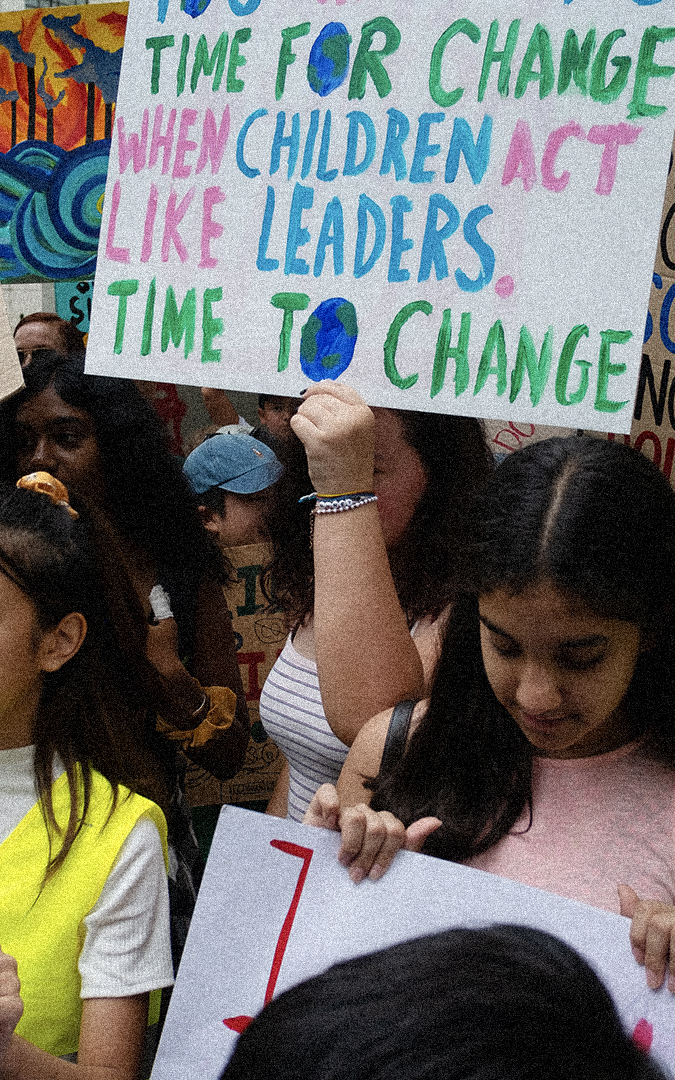 TIME FOR CHANGE
WHEN CHILDREN ACT
LIKE LEADERS.
TIME TO CHANGE